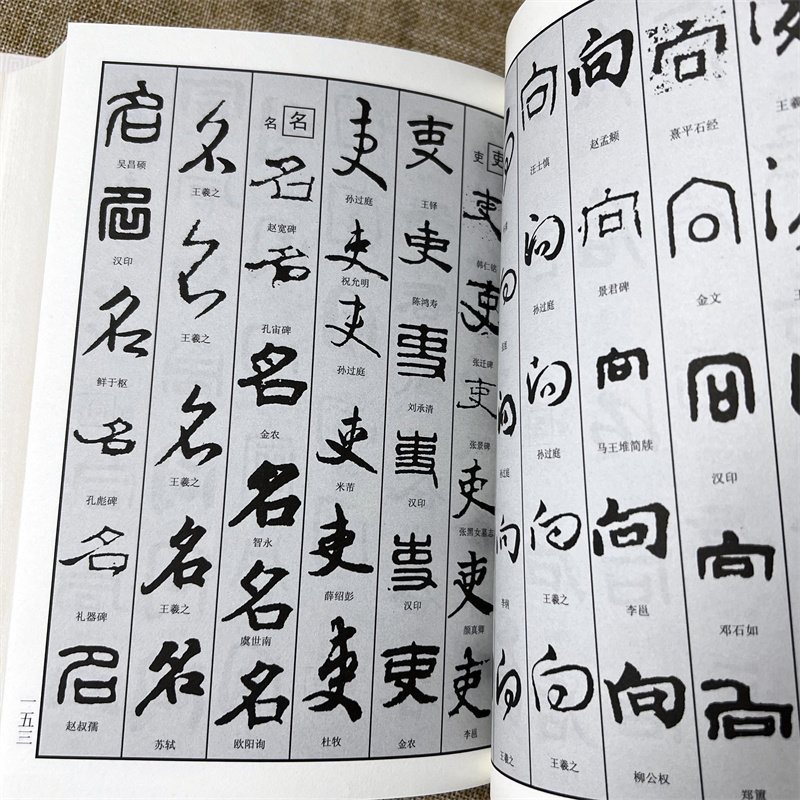 向
熹平石经
向
金文
向
汉印
向
邓石如
向
郑簠
向
赵孟頫
向
景君碑
向
马王堆简牍
向
李邕
向
柳公权
向
汪士慎
向
孙过庭
向
孙过庭
向
王羲之
向
王羲之
向
王羲之
吏 吏
吏
韩仁铭
吏
张迁碑
吏
张景碑
吏
张黑女墓志
吏
颜真卿
吏
李邕
吏
王铎
吏
陈鸿寿
吏
刘承清
吏
汉印
吏
汉印
吏
金农
吏
孙过庭
吏
祝允明
吏
孙过庭
吏
米芾
吏
薛绍彭
吏
杜牧
名 名
名
赵宽碑
名
孔宙碑
名
金农
名
智永
名
虞世南
名
欧阳询
名
王羲之
名
王羲之
名
王羲之
名
王羲之
名
苏轼
名
吴昌硕
名
汉印
名
鲜于枢
名
孔彪碑
名
礼器碑
名
赵叔孺
一五三